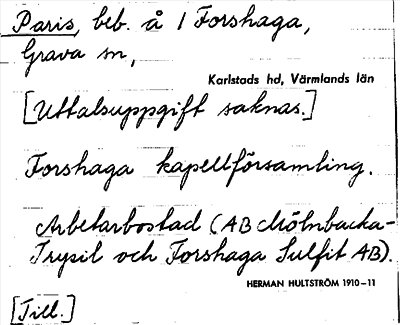 Paris, beb. å 1 Forshaga,
Grava sn,
Karlstads hd, Värmlands län
[Uttalsuppgift saknas.]
Forshaga kapellförsamling.
Arbetarbostad (AB Mölnbacka-
Trysil och Forshaga Sulfit AB).
HERMAN HULTSTRÖM 1910–11
[Till.]